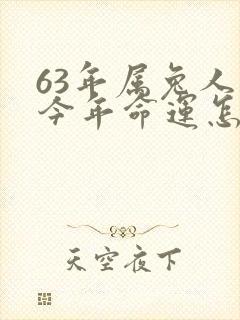 63年属兔人
今年命运怎
天空夜下